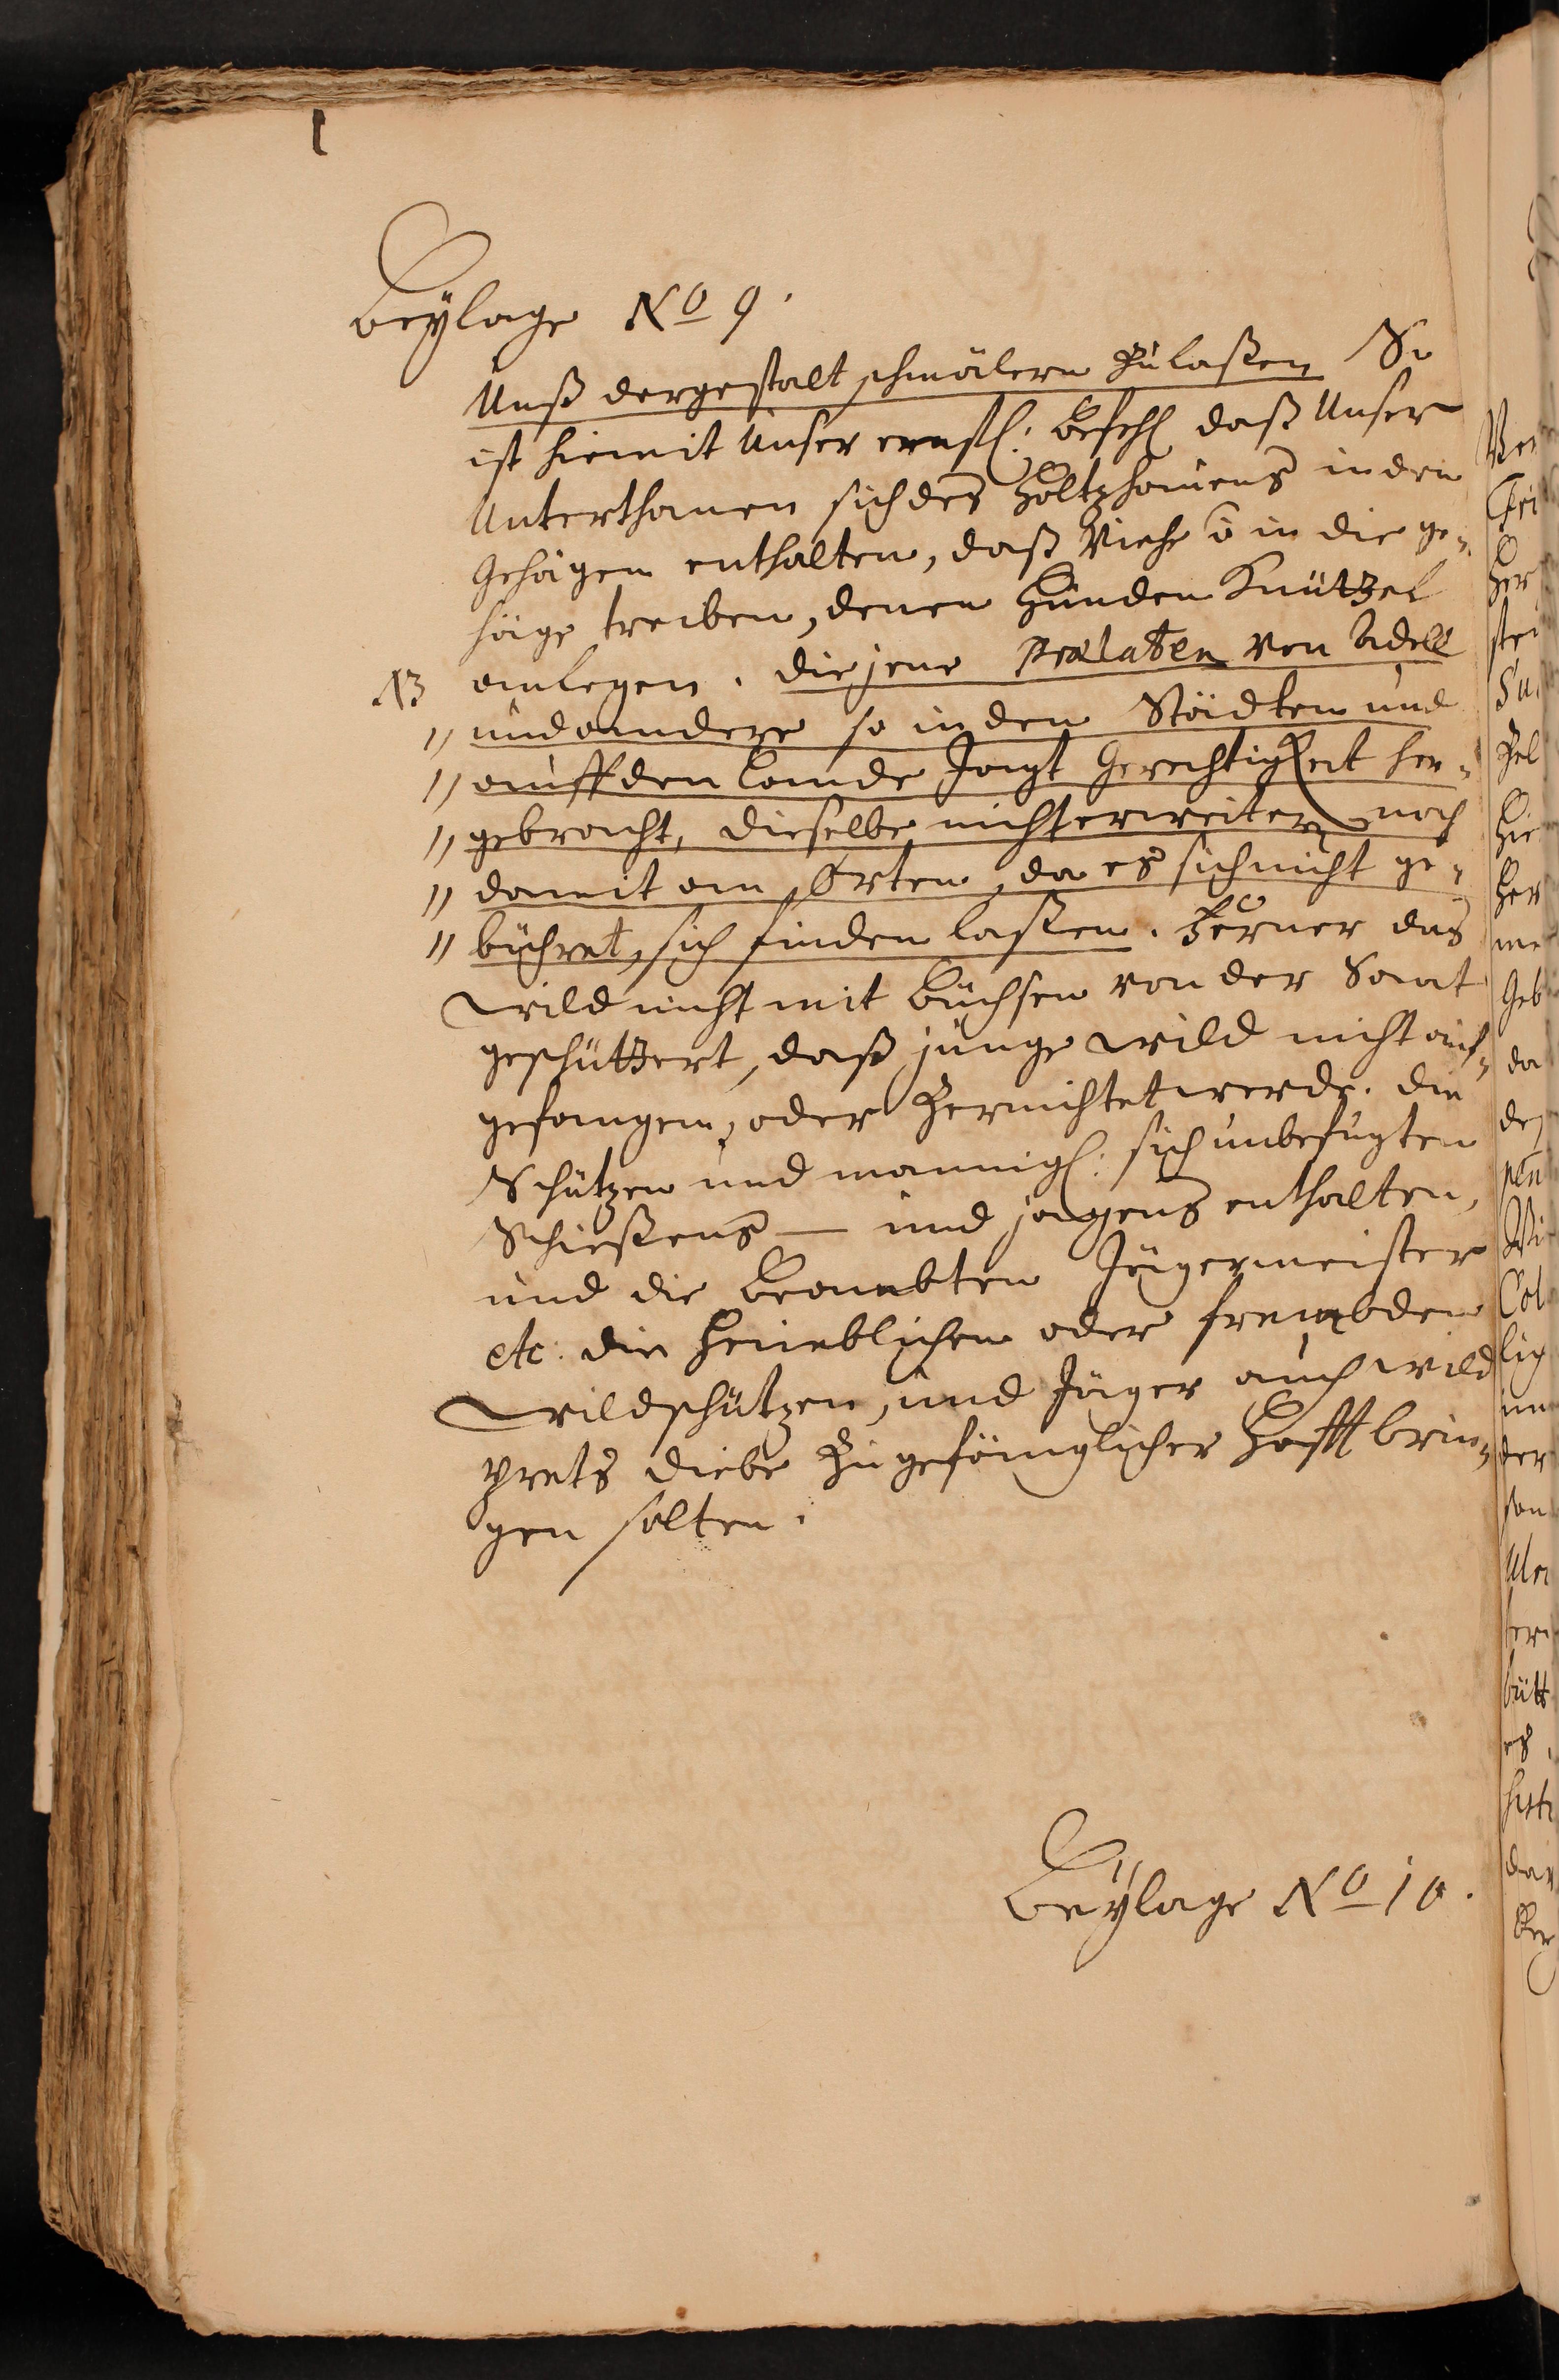 Beylage No 9.
Unß dergestalt schmälern zulaßen So
ist hiemit Unser ernstl: befehl daß Unser
Unterthanen sich des Holtzhauens in den
Gehägen enthalten, daß Viehe ō in die ge-
häge treiben, denen Hunden Knüttel
NB anlegen. diejene Prælaten von Adell
" und andere so in den Städten und
" auff den Lande Jagt Gerechtigkeit her-
" gebracht, dieselbe nicht erweitern noch
" damit an Orten, da es sich nicht ge-
" bühret, sich finden laßen. Ferner das
Wild nicht mit büchsen von der Saat
geschüttert, daß junge Wild nicht auf-
gefangen, oder zernichtet werde. die
Schützen und mannigl: sich unbefugten
Schießens — und jagens enthalten,
und die Beambten Jägermeister
etc. die heimblichen oder frembden
Wildschützen, und Jäger auch wild
prets diebe zu gefänglicher Hafft brin-
gen solten.
Beylage No 10.